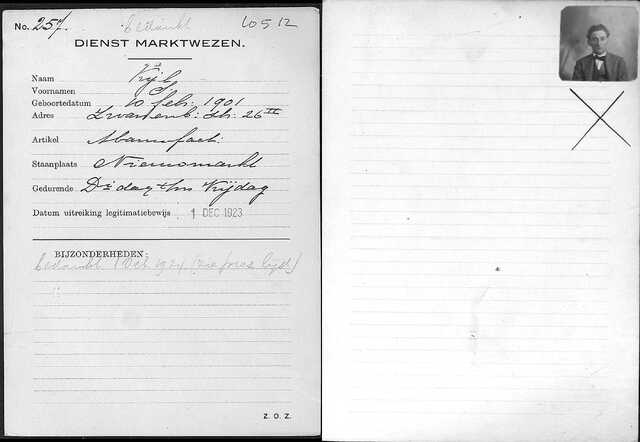 No. 257. bedankt 10512
DIENST MARKTWEZEN.
Naam
Voornamen S.
Geboortedatum 10 feb: 1901
Adres Zwanenb: str: 26 II
Artikel Manufact:
Staanplaats Nieuwmarkt
Gedurende Di dag t/m Vrijdag
Datum uitreiking legitimatiebewijs 1 DEC 1923
BIJZONDERHEDEN:
bedankt 1 Oct. 1924 (zie lijst)
Z. O. Z.